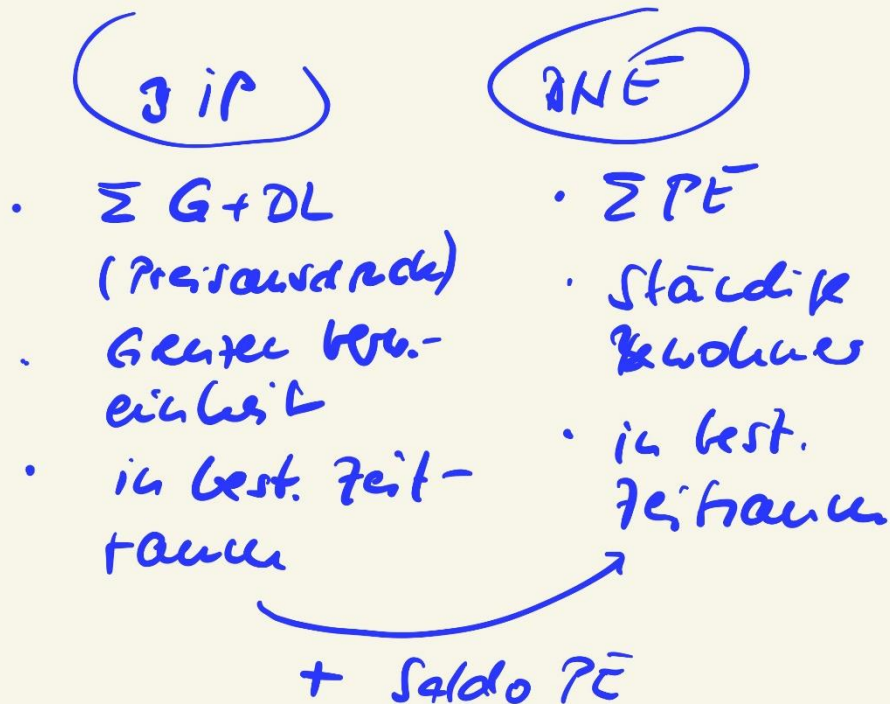 BIP
· Σ G+DL
(Preisausdruck)
· Grenzen
einheit
· in best. Zeit-
raum
BNE
· Σ PE
· Ständige
Bewohner
· in best.
Zeitraum
+ Saldo PE